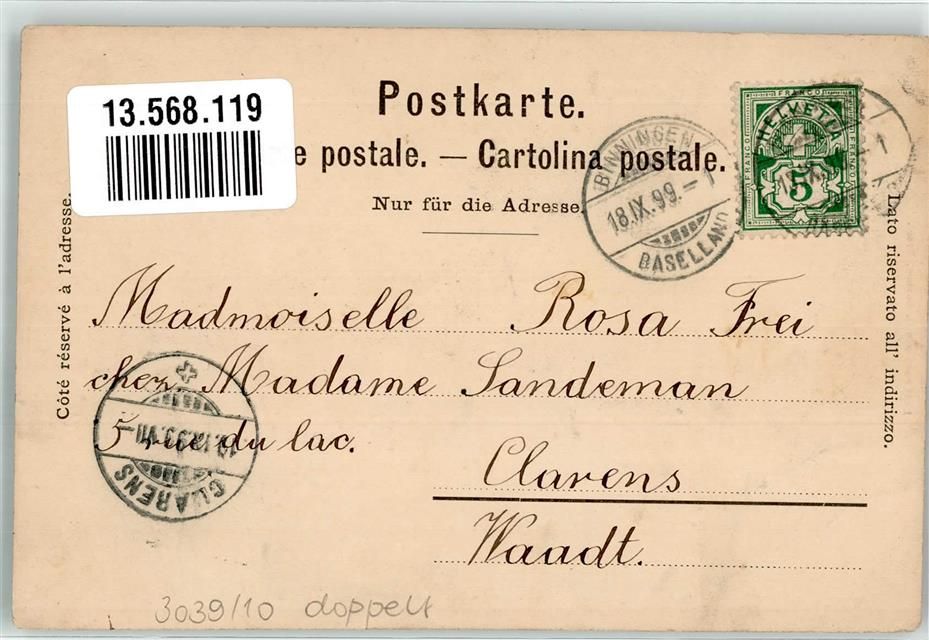 13.568.119
Postkarte.
e postale. — Cartolina postale.
Nur für die Adresse.
Côté réservé à l'adresse.
Dato riservato all' indirizzo.
BINNINGEN
18.IX.99.-1
BASELLAND
FRANCO
HELVETIA
FRANCO
FRANCO
5
Madmoiselle Rosa Frei
chez Madame Sandeman
5 rue du lac.
Clarens
Waadt.
CLARENS
3039/10 doppelt